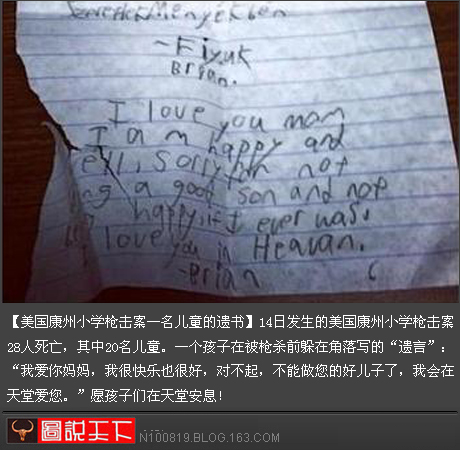 Szeretlek Menyekben
~Fiyuk
Brian.
I love you mom
I am happy and
ell, Sorry for not
ng a good son and not
happy, if I ever was.
I love you in Heavan.
-Brian
【美国康州小学枪击案一名儿童的遗书】14日发生的美国康州小学枪击案
28人死亡，其中20名儿童。一个孩子在被枪杀前躲在角落写的“遗言”：
“我爱你妈妈，我很快乐也很好，对不起，不能做您的好儿子了，我会在
天堂爱您。”愿孩子们在天堂安息！
圖說天下
N100819.BLOG.163.COM